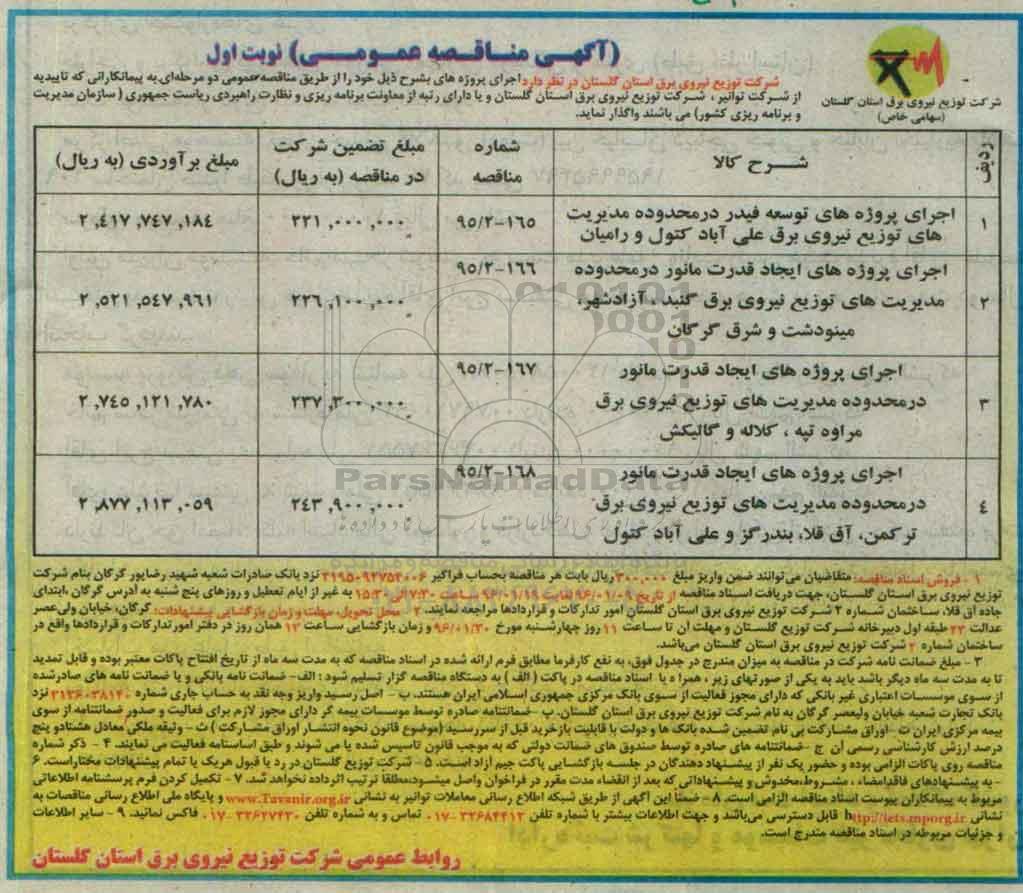 (آگهی مناقصه عمومی) نوبت اول
شرکت توزیع نیروی برق استان گلستان در نظر دارد اجرای پروژه های بشرح ذیل خود را از طریق مناقصه عمومی دو مرحله‌ای به پیمانکارانی که تاییدیه
از شرکت توانیر ، شرکت توزیع نیروی برق استان گلستان و یا دارای رتبه از معاونت برنامه ریزی و نظارت راهبردی ریاست جمهوری ( سازمان مدیریت
و برنامه ریزی کشور) می باشند واگذار نماید.
شرکت توزیع نیروی برق استان گلستان
(سهامی خاص)
ردیف شرح کالا شماره مناقصه مبلغ تضمین شرکت در مناقصه (به ریال) مبلغ برآوردی (به ریال)
۱ اجرای پروژه های توسعه فیدر درمحدوده مدیریت ۹۵/۲-۱۶۵ ۲۲۱,۰۰۰,۰۰۰ ۲,۴۱۷,۷۴۷,۱۸۴
های توزیع نیروی برق علی آباد کتول و رامیان
اجرای پروژه های ایجاد قدرت مانور درمحدوده ۹۵/۲-۱۶۶
۲ مدیریت های توزیع نیروی برق گنبد ، آزادشهر، ۲۲۶,۱۰۰,۰۰۰ ۲,۵۲۱,۵۴۷,۹۶۱
مینودشت و شرق گرگان
اجرای پروژه های ایجاد قدرت مانور ۹۵/۲-۱۶۷
۳ درمحدوده مدیریت های توزیع نیروی برق ۲۳۷,۳۰۰,۰۰۰ ۲,۷۴۵,۱۲۱,۷۸۰
مراوه تپه ، کلاله و گالیکش
اجرای پروژه های ایجاد قدرت مانور ۹۵/۲-۱۶۸
۴ درمحدوده مدیریت های توزیع نیروی برق ۲۴۳,۹۰۰,۰۰۰ ۲,۸۷۷,۱۱۳,۰۵۹
ترکمن، آق قلا، بندرگز و علی آباد کتول
ParsNamadData
۱ - فروش اسناد مناقصه: متقاضیان می‌توانند ضمن واریز مبلغ ۳۰۰,۰۰۰ ریال بابت هر مناقصه بحساب فراگیر ۳۱۹۵۰۹۲۷۵۲۰۰۶ نزد بانک صادرات شعبه شهید رضاپور گرگان بنام شرکت
توزیع نیروی برق استان گلستان، جهت دریافت اسناد مناقصه از تاریخ ۹۶/۰۱/۰۹ لغایت ۹۶/۰۱/۱۹ ساعت ۷:۳۰ الی ۱۵:۳۰ به غیر از ایام تعطیل و روزهای پنج شنبه به آدرس گرگان ،ابتدای
جاده آق قلا، ساختمان شماره ۲ شرکت توزیع نیروی برق استان گلستان امور تدارکات و قراردادها مراجعه نمایند. ۲ - محل تحویل، مهلت و زمان بازگشایی پیشنهادات: گرگان، خیابان ولی‌عصر
عدالت ۲۳ طبقه اول دبیرخانه شرکت توزیع گلستان و مهلت آن تا ساعت ۱۱ روز چهارشنبه مورخ ۹۶/۰۱/۳۰ و زمان بازگشایی ساعت ۱۳ همان روز در دفتر امور تدارکات و قراردادها واقع در
ساختمان شماره ۲ شرکت توزیع نیروی برق استان گلستان می‌باشد.
۳ - مبلغ ضمانت نامه شرکت در مناقصه به میزان مندرج در جدول فوق، به نفع کارفرما مطابق فرم ارائه شده در اسناد مناقصه که به مدت سه ماه از تاریخ افتتاح پاکات معتبر بوده و قابل تمدید
تا به مدت سه ماه دیگر باشد باید به یکی از صورتهای زیر ، همراه با اسناد مناقصه در پاکت ( الف ) به دستگاه مناقصه گزار تسلیم شود : الف- ضمانت نامه بانکی و یا ضمانت نامه های صادرشده
از سوی موسسات اعتباری غیر بانکی که دارای مجوز فعالیت از سوی بانک مرکزی جمهوری اسلامی ایران هستند. ب - اصل رسید واریز وجه نقد به حساب جاری شماره ۲۱۳۶۰۳۸۱۴۰ نزد
بانک تجارت شعبه خیابان ولیعصر گرگان به نام شرکت توزیع نیروی برق استان گلستان. پ- ضمانتنامه صادره توسط موسسات بیمه گر دارای مجوز لازم برای فعالیت و صدور ضمانتنامه از سوی
بیمه مرکزی ایران ت- اوراق مشارکت بی نام تضمین شده بانک ها و دولت با قابلیت بازخرید قبل از سررسید (موضوع قانون نحوه انتشار اوراق مشارکت ) ث - وثیقه ملکی معادل هشتاد و پنج
درصد ارزش کارشناسی رسمی آن ج - ضمانتنامه های صادره توسط صندوق های ضمانت دولتی که به موجب قانون تاسیس شده یا می شوند و طبق اساسنامه فعالیت می نمایند. ۴ - ذکر شماره
مناقصه روی پاکات الزامی بوده و حضور یک نفر از پیشنهاد دهندگان در جلسه بازگشایی پاکت جیم آزاد است. ۵ - شرکت توزیع گلستان در رد یا قبول هریک یا تمام پیشنهادات مختاراست. ۶
- به پیشنهادهای فاقدامضاء ، مشروط،مخدوش و پیشنهاداتی که بعد از انقضاء مدت مقرر در فراخوان واصل میشود،مطلقا ترتیب اثرداده نخواهد شد. ۷ - تکمیل کردن فرم پرسشنامه اطلاعاتی
مربوط به پیمانکاران پیوست اسناد مناقصه الزامی است. ۸ - ضمنا این آگهی از طریق شبکه اطلاع رسانی معاملات توانیر به نشانی www.Tavanir.org.ir و پایگاه ملی اطلاع رسانی مناقصات به
نشانی http://iets.mporg.ir قابل دسترسی می‌باشد و جهت اطلاعات بیشتر با شماره تلفن ۳۲۶۸۴۴۱۲-۰۱۷ تماس و به شماره تلفن ۳۲۶۲۷۴۳۰-۰۱۷ فاکس نمائید. ۹ - سایر اطلاعات
و جزئیات مربوطه در اسناد مناقصه مندرج است.
روابط عمومی شرکت توزیع نیروی برق استان گلستان